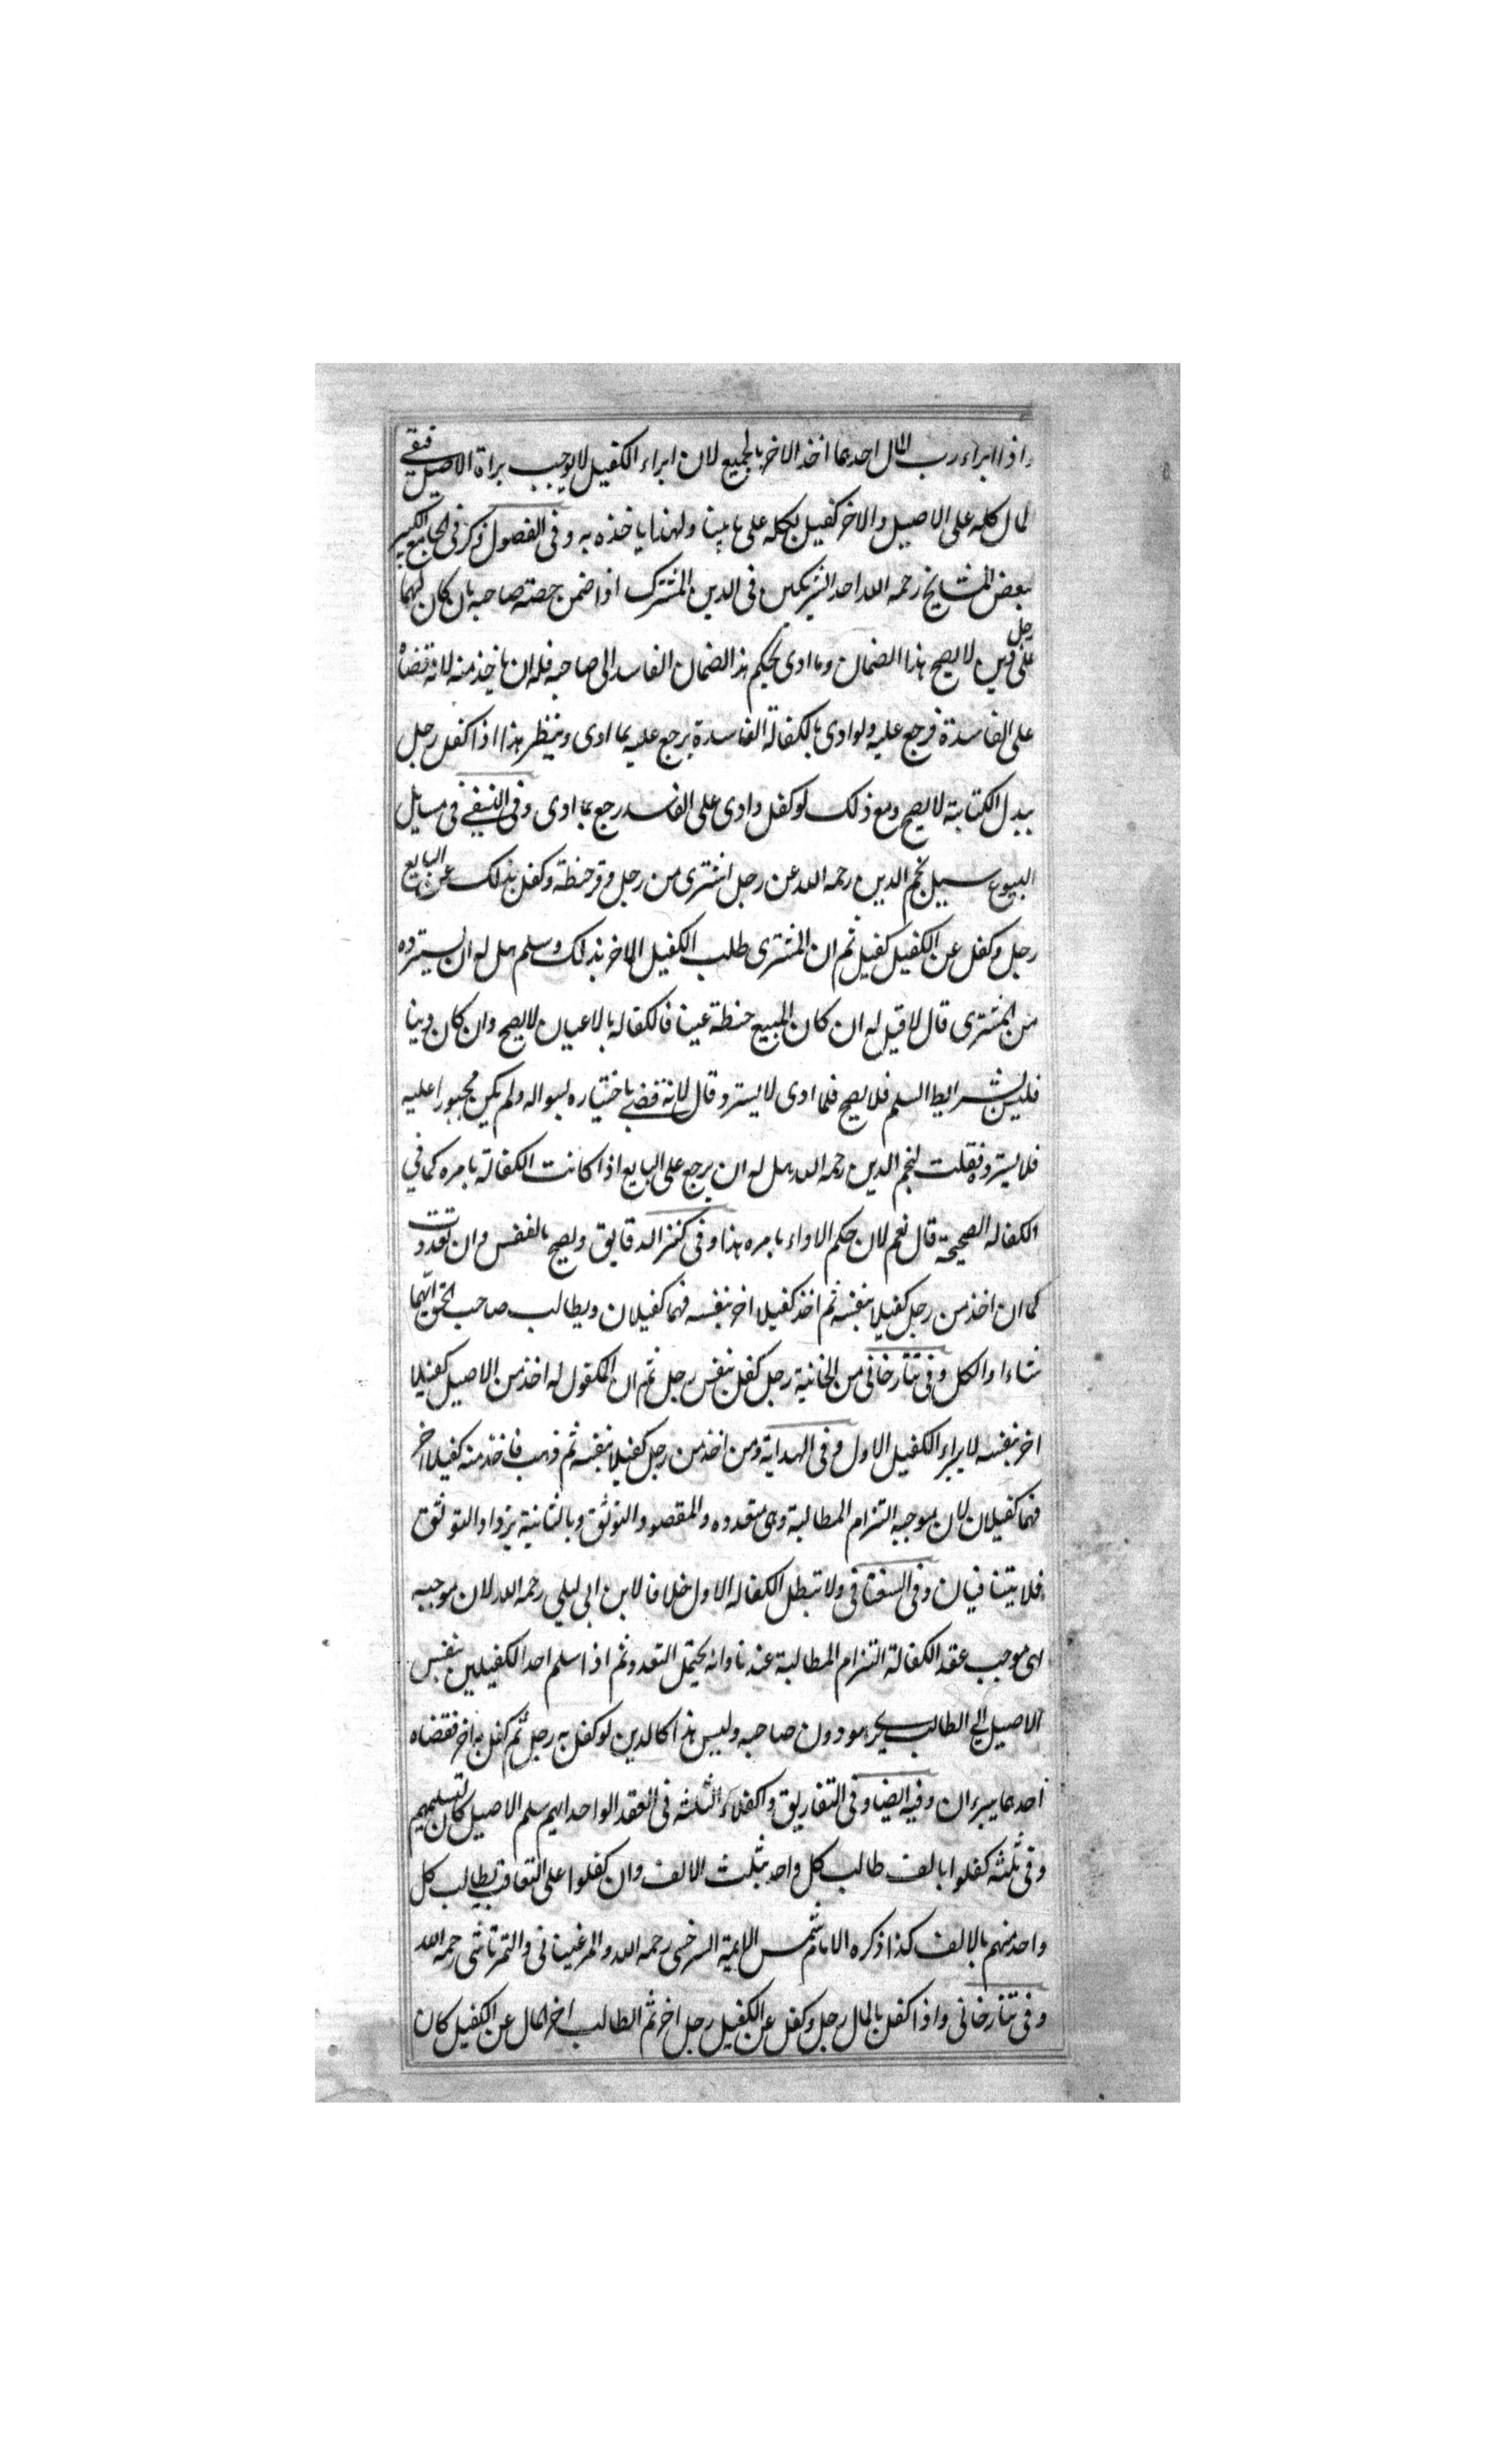 واذا ابراء رب المال احدهما اخذ الاخر بالجميع لان ابراء الكفيل لا يوجب براة الاصيل فيبقى
المال كله على الاصيل والاخر كفيل بكله على ما بينا ولهذا ياخذه به وفى الفصول ذكر فى الجامع الكبير
بعض المشايخ رحمه الله احد الشريكين فى الدين المشترك اذا ضمن حصته صاحبه بان كان لهما
على رجل دين لا يصح هذا الضمان وما ادى بحكم هذ الضمان الفاسد الى صاحبه فله ان ياخذ منه لانه قضاه
على الفاسدة فرجع عليه ولو ادى بالكفالة الفاسدة يرجع عليه بما ادى وينظر هذا اذا كفل رجل
ببدل الكتابة لا يصح ومع ذلك لو كفل وادى على الفاسد رجع بما ادى وفى النسفى فى مسايل
البيوع سيل نجم الدين رحمه الله عن رجل اشترى من رجل وقر حنطة وكفل بذلك عن البايع
رجل وكفل عن الكفيل كفيل ثم ان المشترى طلب الكفيل الاخر بذلك وسلم هل له ان يسترده
من المشترى قال لا قيل له ان كان المبيع حنطة عينا فالكفاله بالاعيان لا يصح وان كان دينا
فليس بشرايط السلم فلا يصح فلما ادى لا يسترد قال لانه قضى باختياره لسواله ولم يكن مجبورا عليه
فلا يسترده فقلت لنجم الدين رحمه الله هل له ان يرجع على البايع اذا كانت الكفالة بامره كما فى
الكفاله الصحيحة قال نعم لان حكم الاداء بامره هذا وفى كنز الدقايق ويصح بالنفس وان تعددت
كما ان اخذ من رجل كفيلا بنفسه ثم اخذ كفيلا اخر بنفسه فهما كفيلان ويطالب صاحب الحق ايهما
شاء او الكل وفى تتارخانى من الخانية رجل كفل بنفس رجل ثم ان المكفول له اخذ من الاصيل كفيلا
اخر بنفسه لا يبراء الكفيل الاول وفى الهداية ومن اخذ من رجل كفيلا بنفسه ثم ذهب فاخذ منه كفيلا اخر
فهما كفيلان لان موجبه التزام المطالبة وهى متعدده والمقصود التوثق وبالثانية يزداد التوثق
فلا يتنافيان وفى السغناقى ولا تبطل الكفاله الاول خلافا لابن ابى ليلى رحمه الله لان موجبه
اى موجب عقد الكفالة التزام المطالبة عندنا وانه يحتمل التعدد ثم اذا سلم احد الكفيلين نفس
الاصيل الى الطالب يبرء هو دون صاحبه وليس هذا كالدين لو كفل به رجل ثم كفل به اخر فقضاه
احدهما يبرءان وفيه ايضا وفى التفاريق وكفلاء الثلثه فى العقد الواحد ايهم سلم الاصيل كان كتسليمهم
وفى ثلثه كفلوا بالف طالب كل واحد بثلث الالف وان كفلوا على التعاقب يطالب كل
واحد منهم بالالف كذا ذكره الامام شمس الايمة السرخسى رحمه الله والمرغينانى والتمرتاشى رحمه الله
وفى تتارخانى واذا كفل بالمال رجل وكفل عن الكفيل رجل اخر ثم الطالب اخر المال عن الكفيل كان